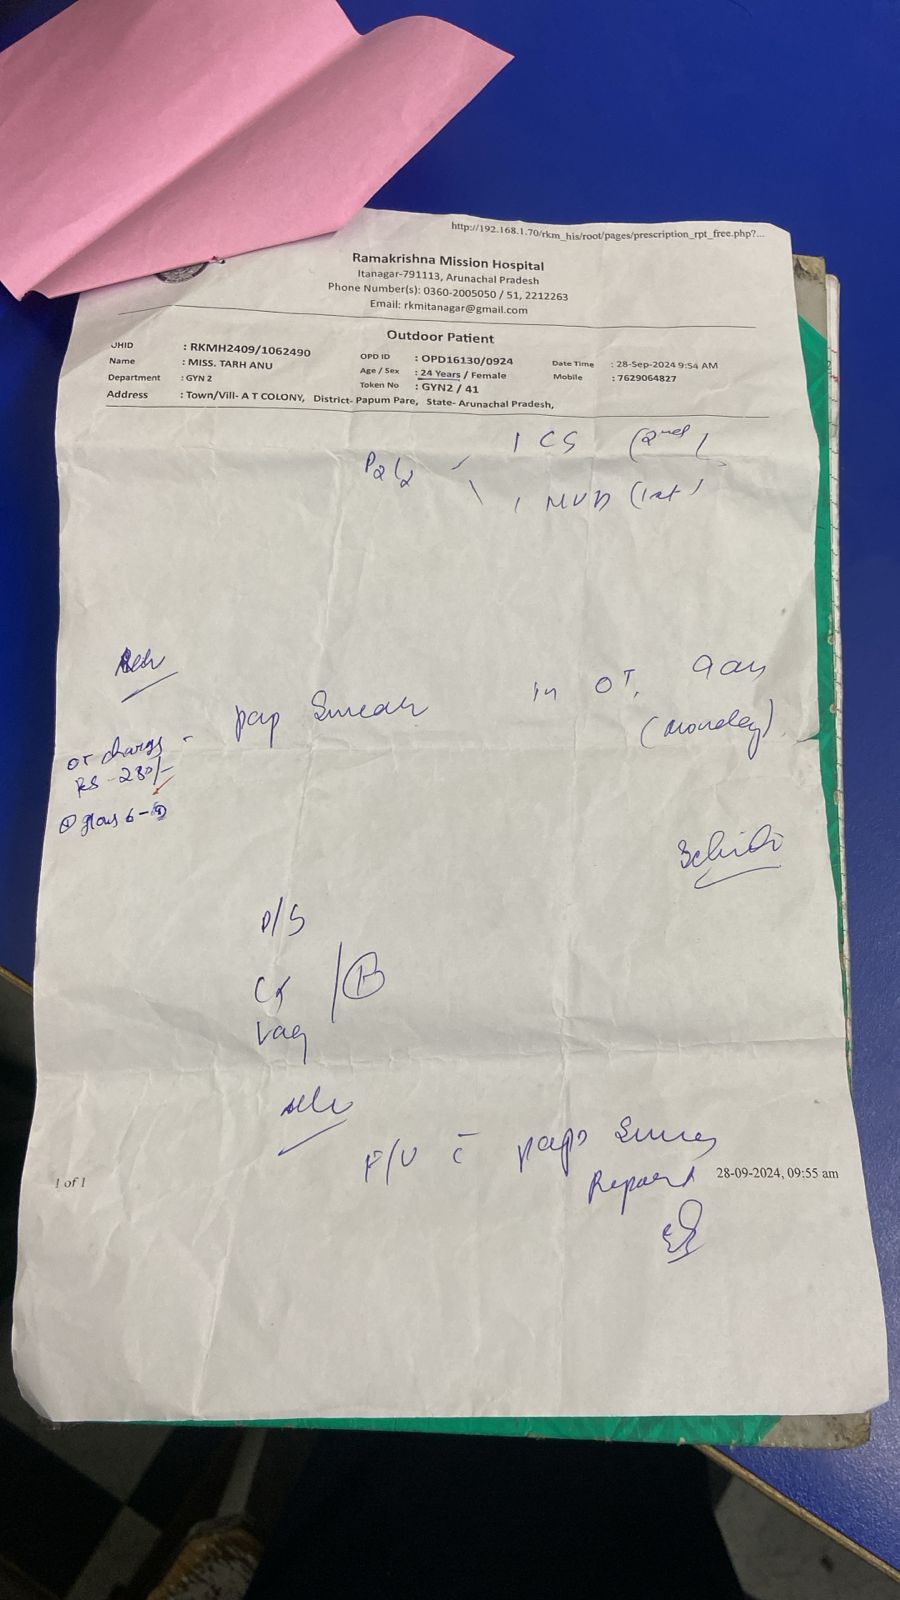 http://192.168.1.70/rkm_his/root/pages/prescription_rpt_free.php?...
Ramakrishna Mission Hospital
Itanagar-791113, Arunachal Pradesh
Phone Number(s): 0360-2005050 / 51, 2212263
Email: rkmitanagar@gmail.com
Outdoor Patient
UHID : RKMH2409/1062490 OPD ID : OPD16130/0924 Date Time : 28-Sep-2024 9:54 AM
Name : MISS. TARH ANU Age / Sex : 24 Years / Female Mobile : 7629064827
Department : GYN 2 Token No : GYN2 / 41
Address : Town/Vill- A T COLONY, District- Papum Pare, State- Arunachal Pradesh,
1 CS (2nd)
P2L2
1 NVD (1st)
Pap Smear in OT, 9am
(Monday)
OT charge -
RS - 280/-
P/S
Cx
Vag
F/U c̄ pap Smear
Report
1 of 1 28-09-2024, 09:55 am